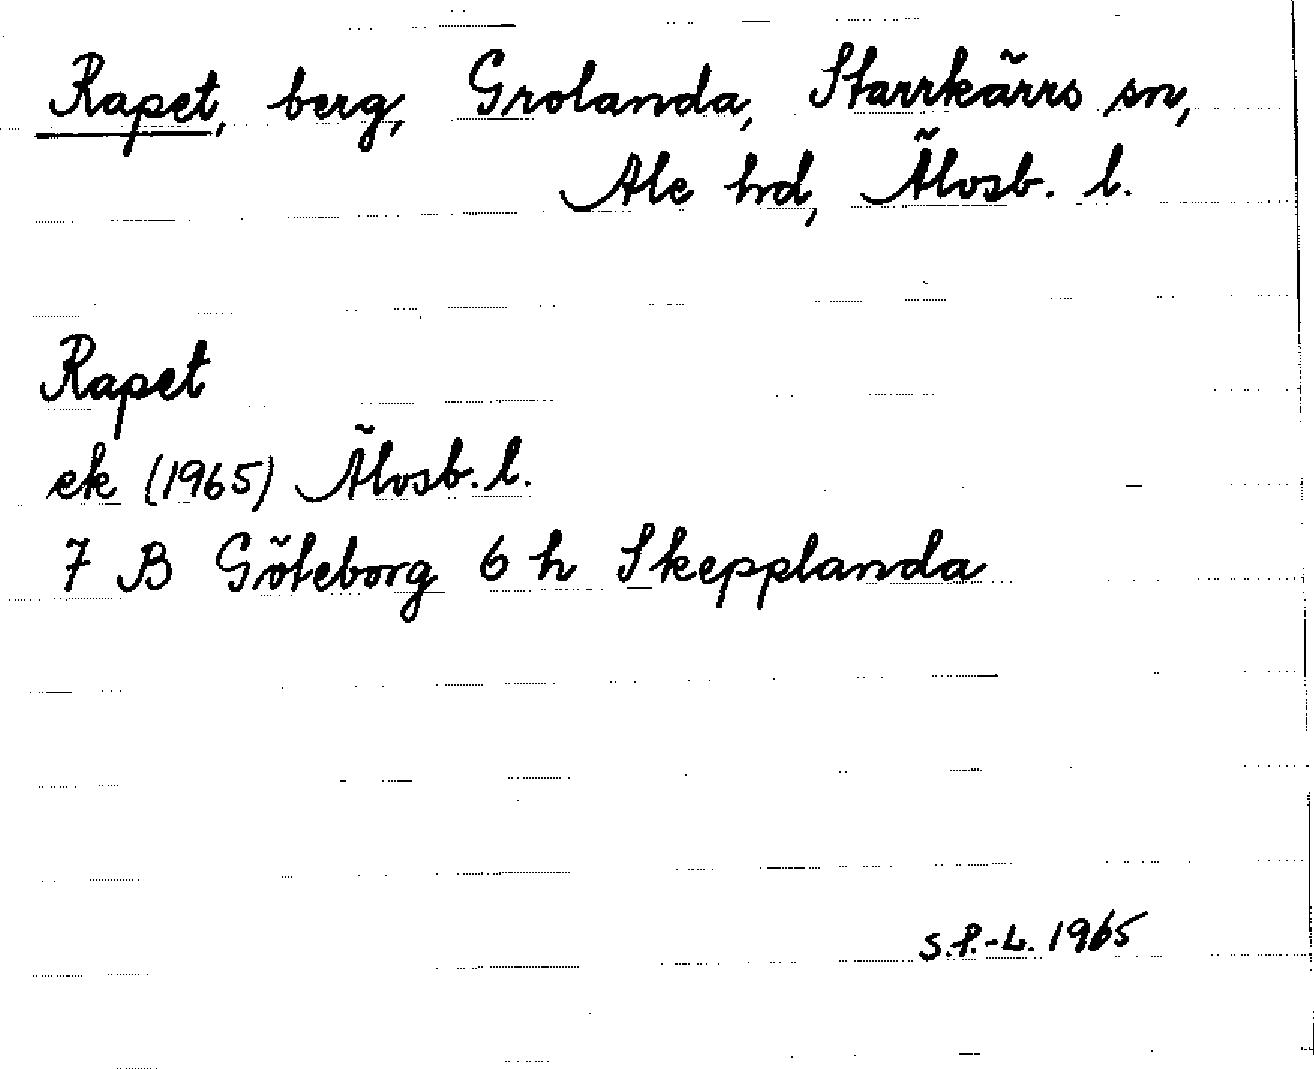 Rapet, berg, Grolanda, Starrkärrs sn,
Ale hd, Älvsb. l.
Rapet
ek (1965) Älvsb. l.
7 B Göteborg 6 h Skepplanda
S.P.-L. 1965